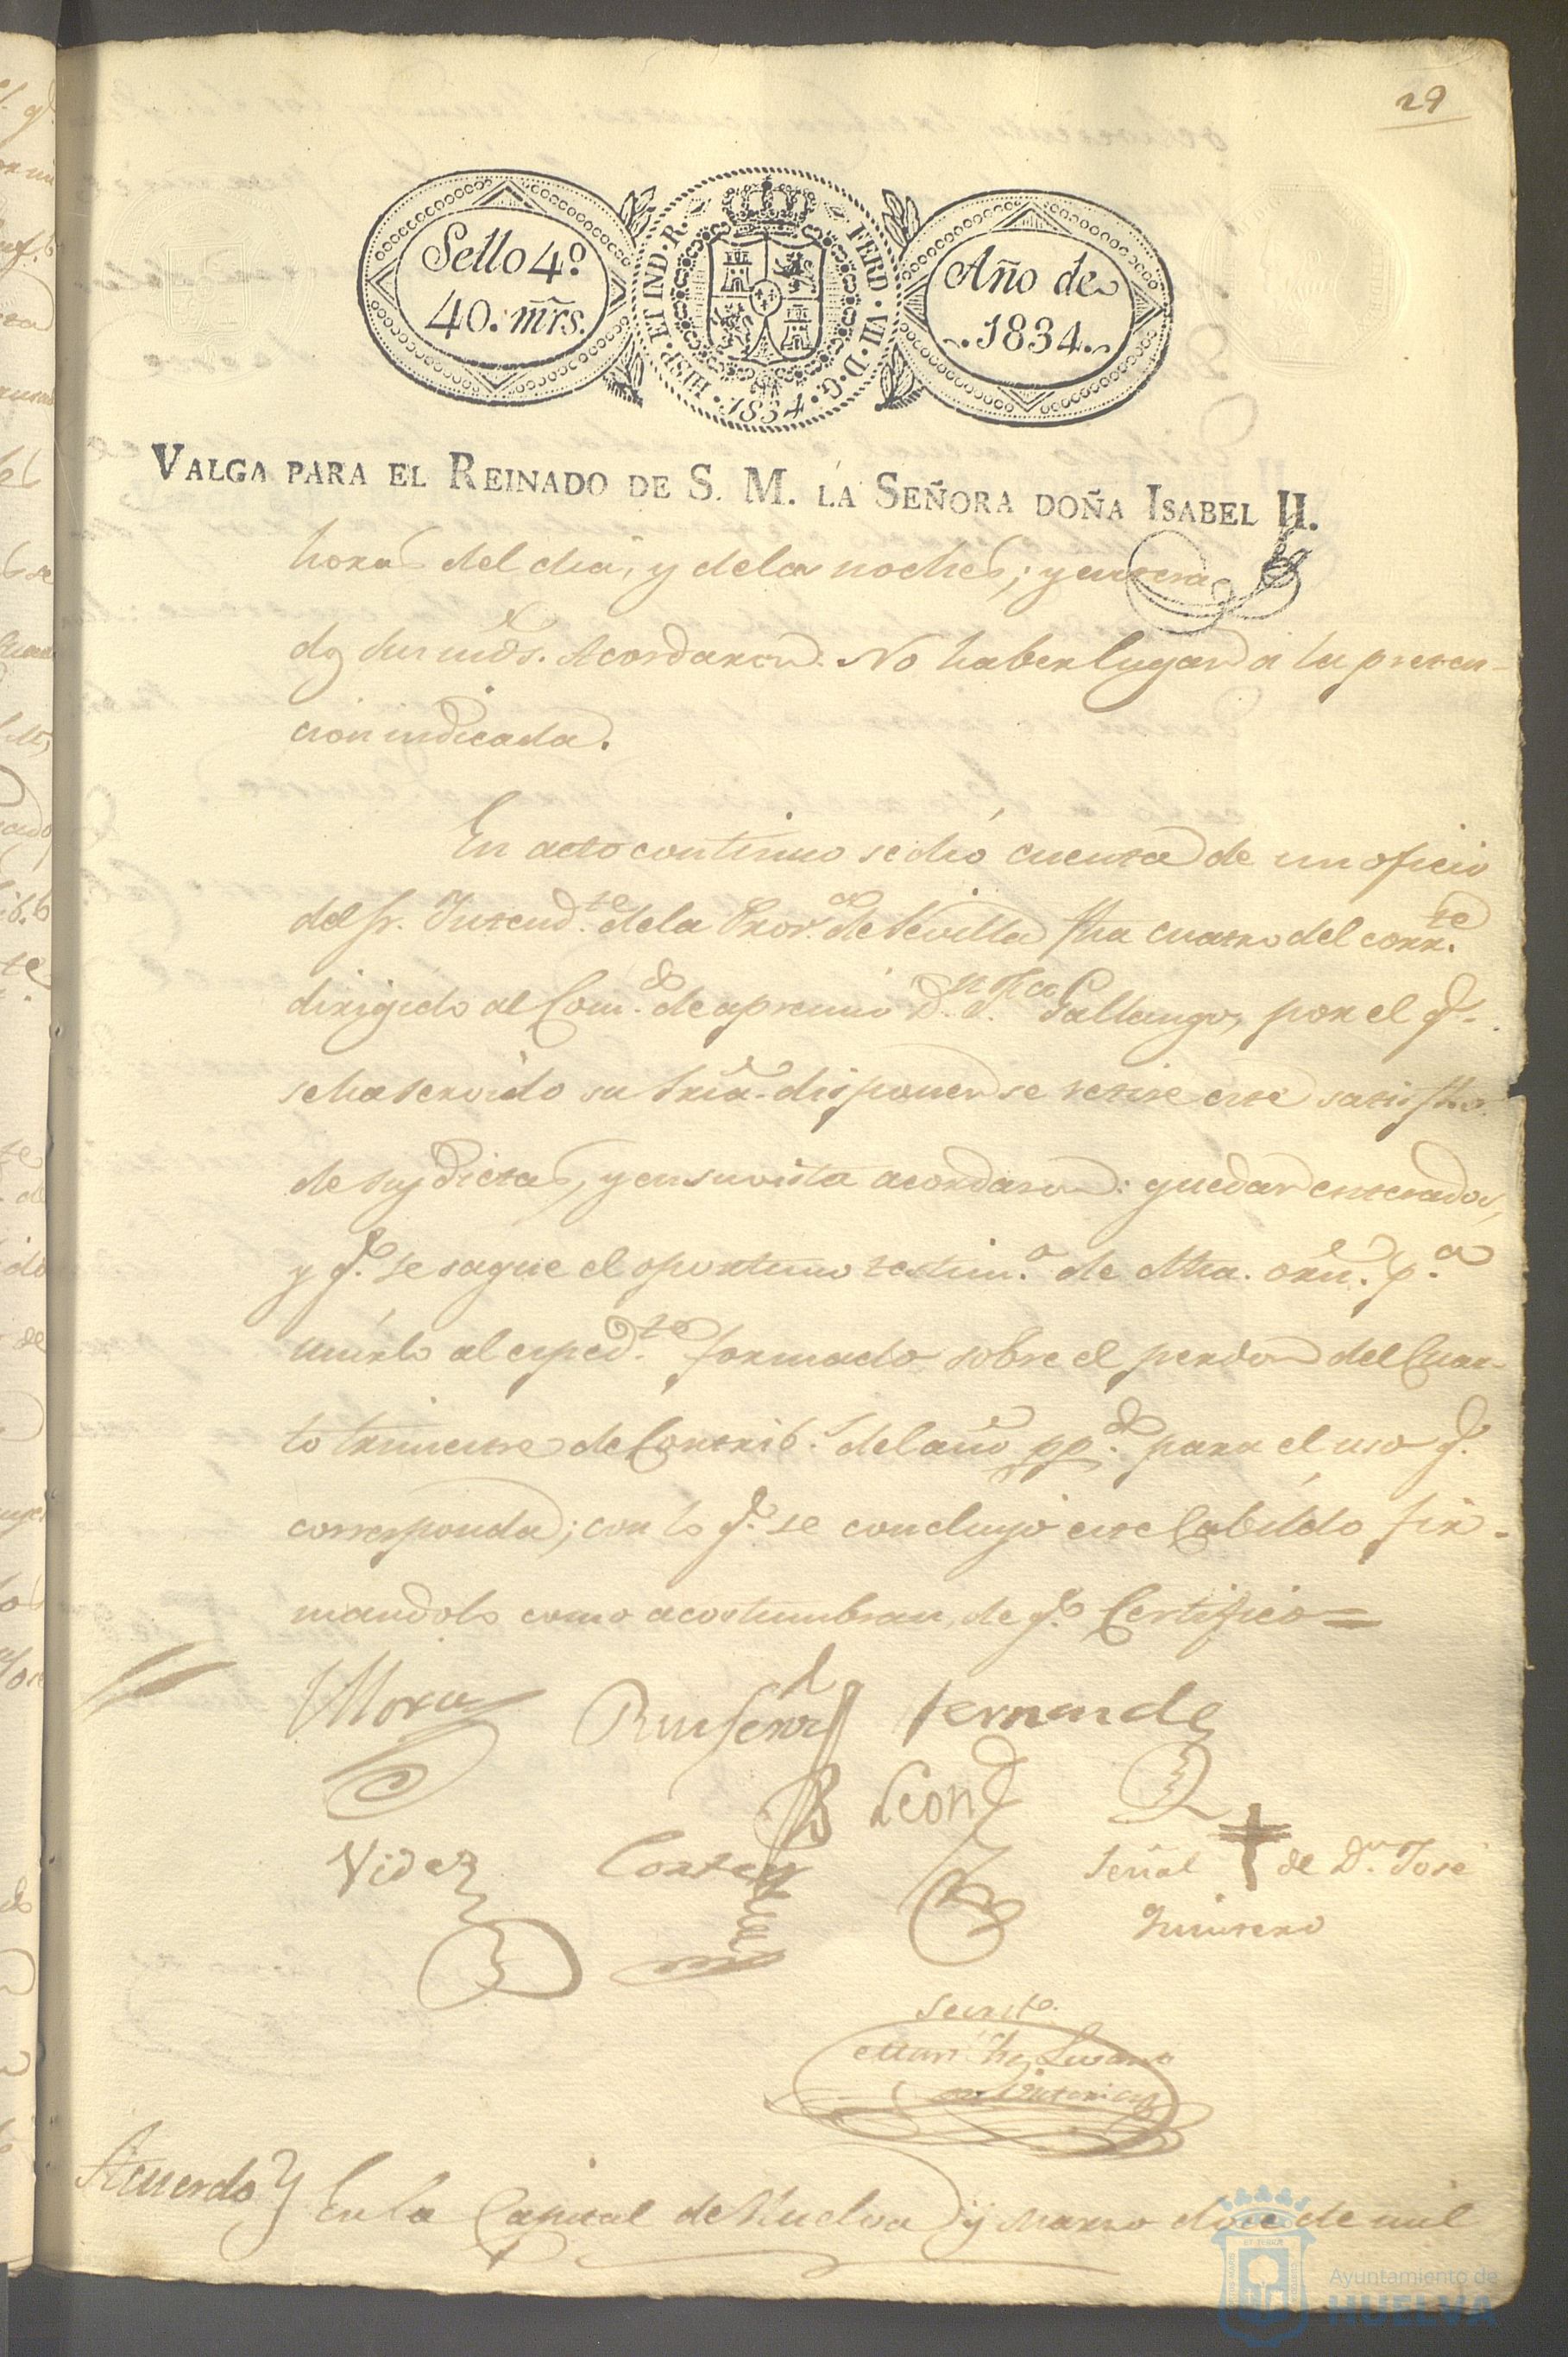 29
Sello 4º
40. mrs.
HISP. ET IND. R. FERD. VII. D. G. 1834.
Año de
1834.
VALGA PARA EL REINADO DE S. M. LA SEÑORA DOÑA ISABEL II.
horas del dia, y dela noches; y entera
dos sus mds. Acordaron: No haber lugar à la preten-
cion indicada.
En acto continuo se dió cuenta de un oficio
del Sr. Intend.te dela Prov.a de Sevilla fha cuatro del corr.te
dirigido al Com.do de apremio D.n Gallangos, por el q.
se ha servido su Sria. disponer se retire este satisfho.
de sus dietas, y en su vista acordaron: quedar enterados,
y q.e se saque el oportuno testim.o de dha. orn. p.a
unirlo al exped.te formado sobre el perdon del Cuar-
to trimestre de Contrib.s del año pp.do para el uso q.
corresponda; con lo q.e se concluyó este Cabildo fir-
mandolo como acostumbran, de q.e Certifico=
Mora
Fernandez
Leon
Videz
Cortes
Señal de D.n José
Quintero
Secret.o
Acuerdo
En la Capital de Huelva y Marzo doce de mil
Ayuntamiento de
HUELVA